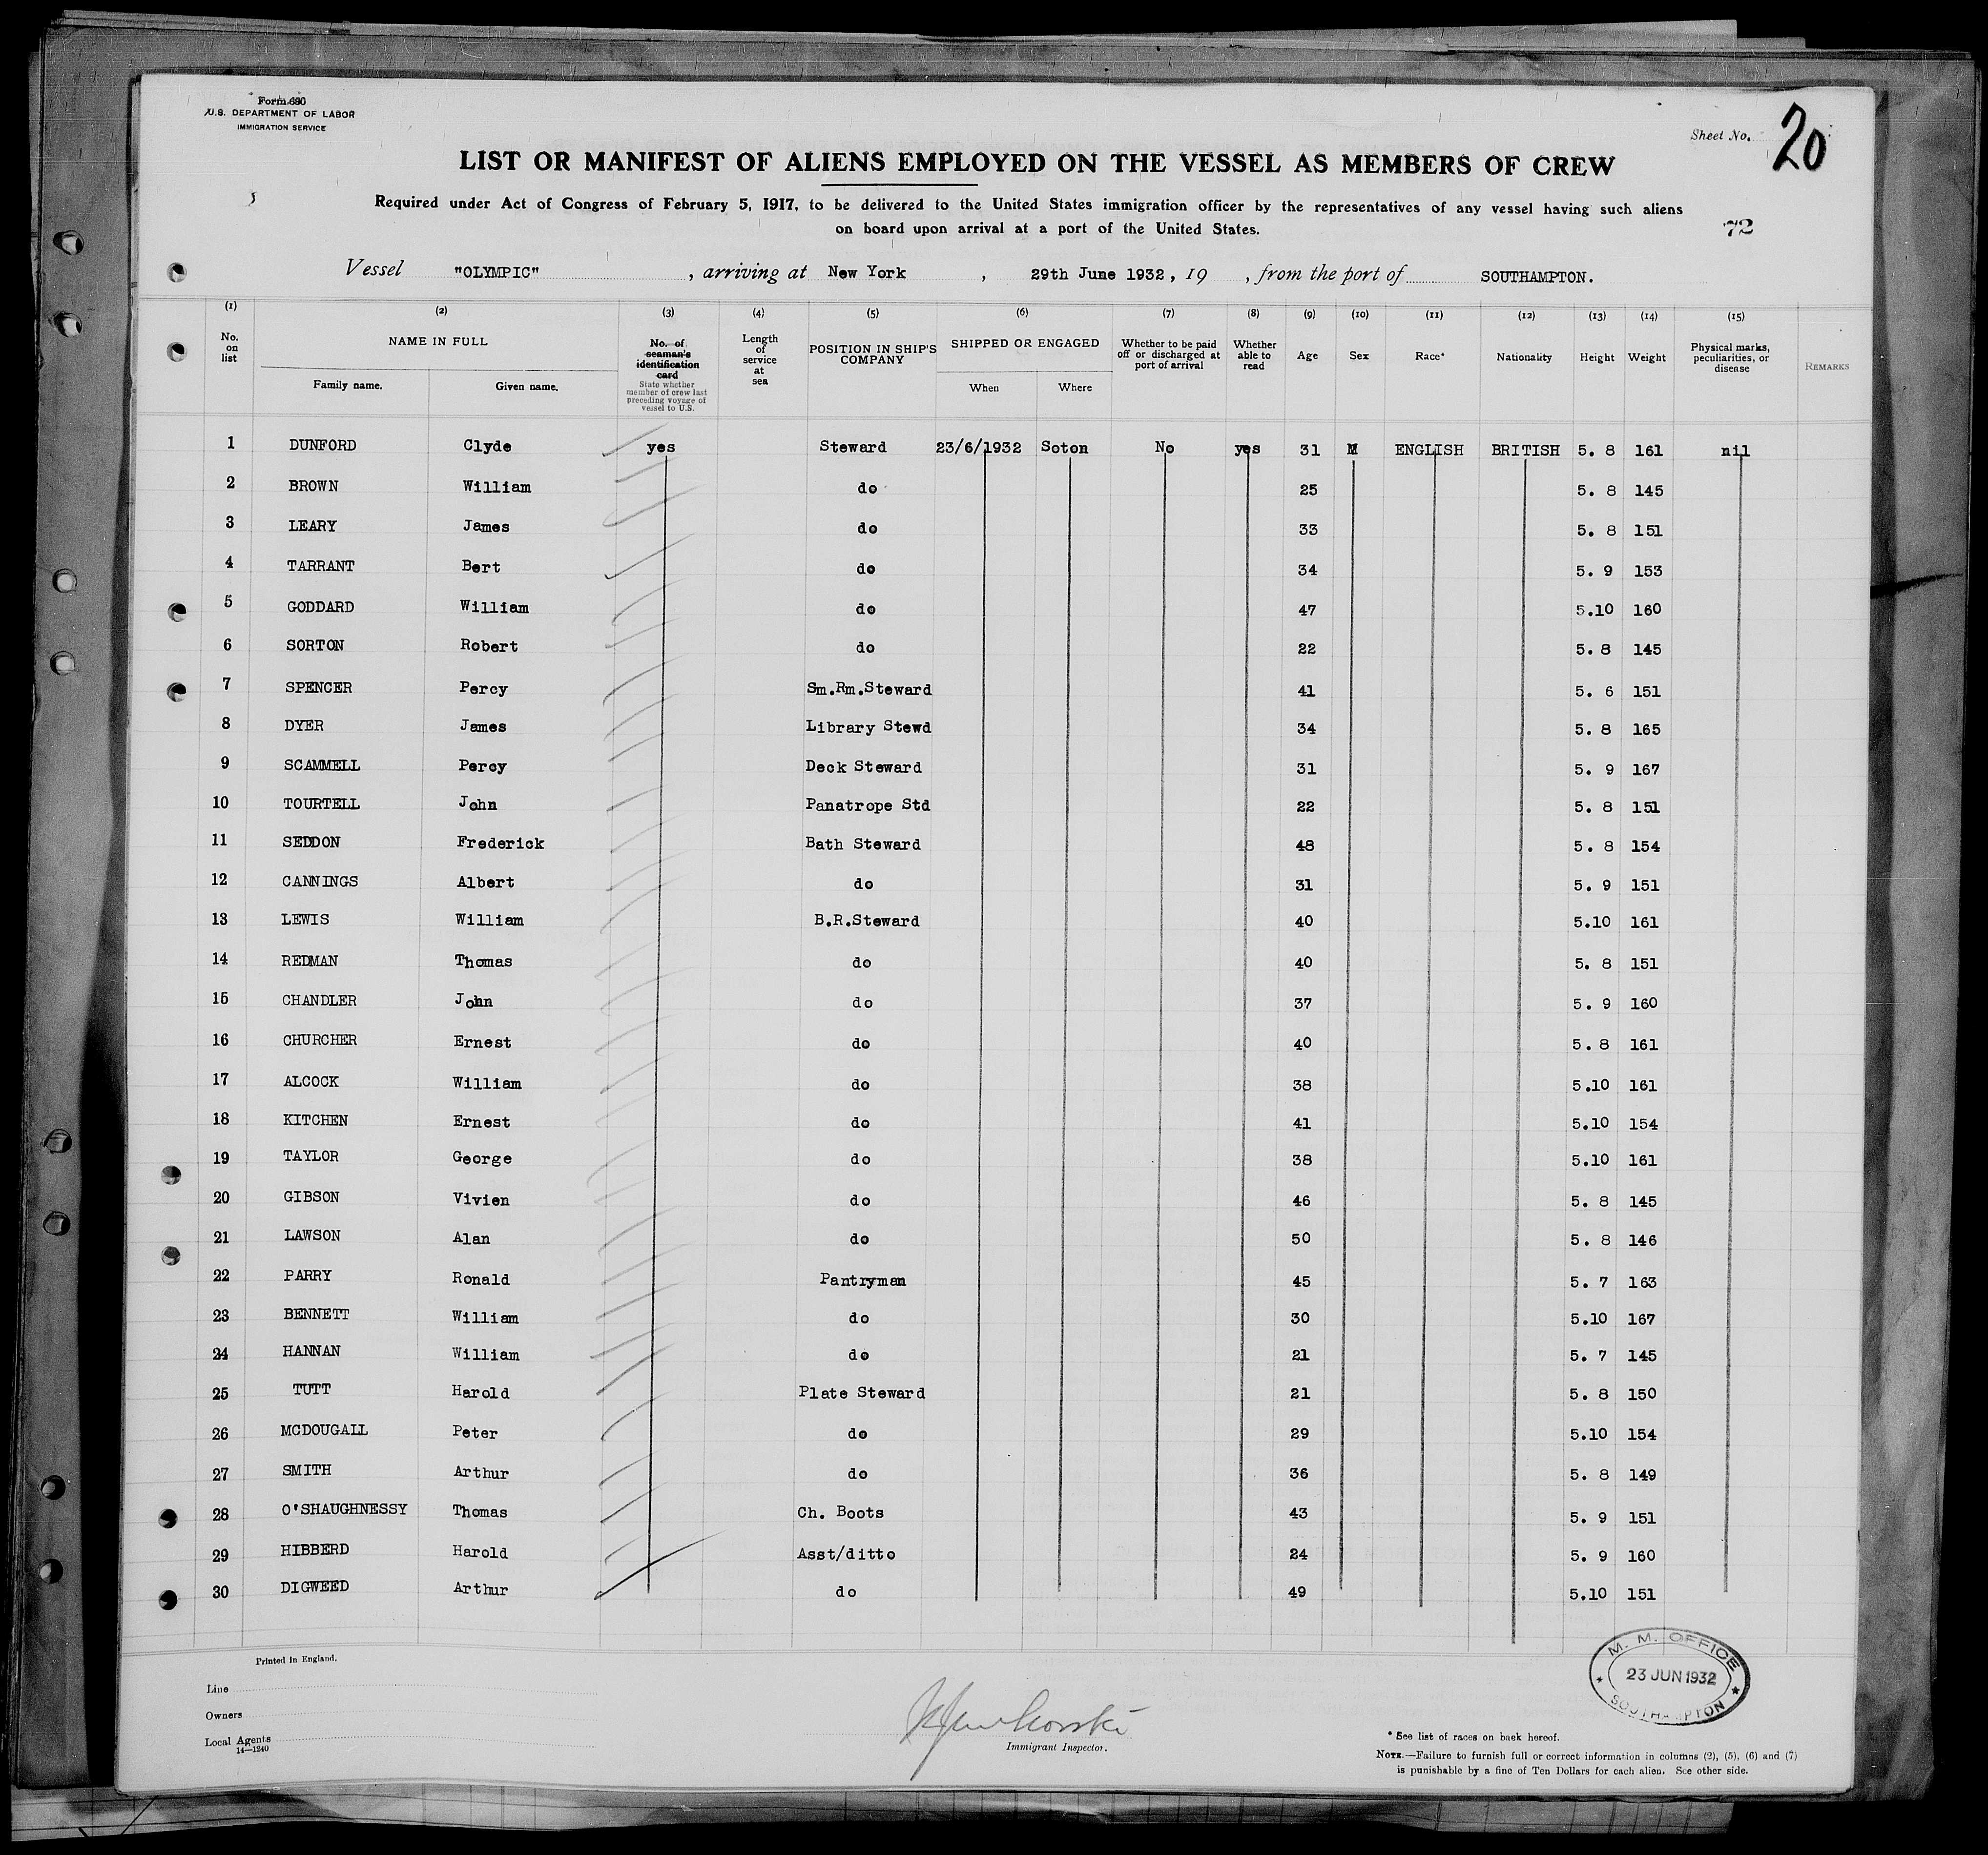 Form 680
U.S. DEPARTMENT OF LABOR
IMMIGRATION SERVICE
Sheet No. 20
LIST OR MANIFEST OF ALIENS EMPLOYED ON THE VESSEL AS MEMBERS OF CREW
Required under Act of Congress of February 5, 1917, to be delivered to the United States immigration officer by the representatives of any vessel having such aliens
on board upon arrival at a port of the United States.
72
Vessel "OLYMPIC" , arriving at New York , 29th June 1932, 19 , from the port of SOUTHAMPTON.
(1) (2) (3) (4) (5) (6) (7) (8) (9) (10) (11) (12) (13) (14) (15)
No. on list NAME IN FULL Family name. Given name. No. of seaman's identification card State whether member of crew last preceding voyage of vessel to U.S. Length of service at sea POSITION IN SHIP'S COMPANY SHIPPED OR ENGAGED When Where Whether to be paid off or discharged at port of arrival Whether able to read Age Sex Race* Nationality Height Weight Physical marks, peculiarities, or disease REMARKS
1 DUNFORD Clyde yes Steward 23/6/1932 Soton No yes 31 M ENGLISH BRITISH 5. 8 161 nil
2 BROWN William do 25 5. 8 145
3 LEARY James do 33 5. 8 151
4 TARRANT Bert do 34 5. 9 153
5 GODDARD William do 47 5.10 160
6 SORTON Robert do 22 5. 8 145
7 SPENCER Percy Sm.Rm.Steward 41 5. 6 151
8 DYER James Library Stewd 34 5. 8 165
9 SCAMMELL Percy Deck Steward 31 5. 9 167
10 TOURTELL John Panatrope Std 22 5. 8 151
11 SEDDON Frederick Bath Steward 48 5. 8 154
12 CANNINGS Albert do 31 5. 9 151
13 LEWIS William B.R.Steward 40 5.10 161
14 REDMAN Thomas do 40 5. 8 151
15 CHANDLER John do 37 5. 9 160
16 CHURCHER Ernest do 40 5. 8 161
17 ALCOCK William do 38 5.10 161
18 KITCHEN Ernest do 41 5.10 154
19 TAYLOR George do 38 5.10 161
20 GIBSON Vivien do 46 5. 8 145
21 LAWSON Alan do 50 5. 8 146
22 PARRY Ronald Pantryman 45 5. 7 163
23 BENNETT William do 30 5.10 167
24 HANNAN William do 21 5. 7 145
25 TUTT Harold Plate Steward 21 5. 8 150
26 MCDOUGALL Peter do 29 5.10 154
27 SMITH Arthur do 36 5. 8 149
28 O'SHAUGHNESSY Thomas Ch. Boots 43 5. 9 151
29 HIBBERD Harold Asst/ditto 24 5. 9 160
30 DIGWEED Arthur do 49 5.10 151
Printed in England.
M. M. OFFICE
23 JUN 1932
SOUTHAMPTON
Line
Owners
Local Agents
14—1240
Immigrant Inspector.
* See list of races on back hereof.
NOTE.—Failure to furnish full or correct information in columns (2), (5), (6) and (7)
is punishable by a fine of Ten Dollars for each alien. See other side.